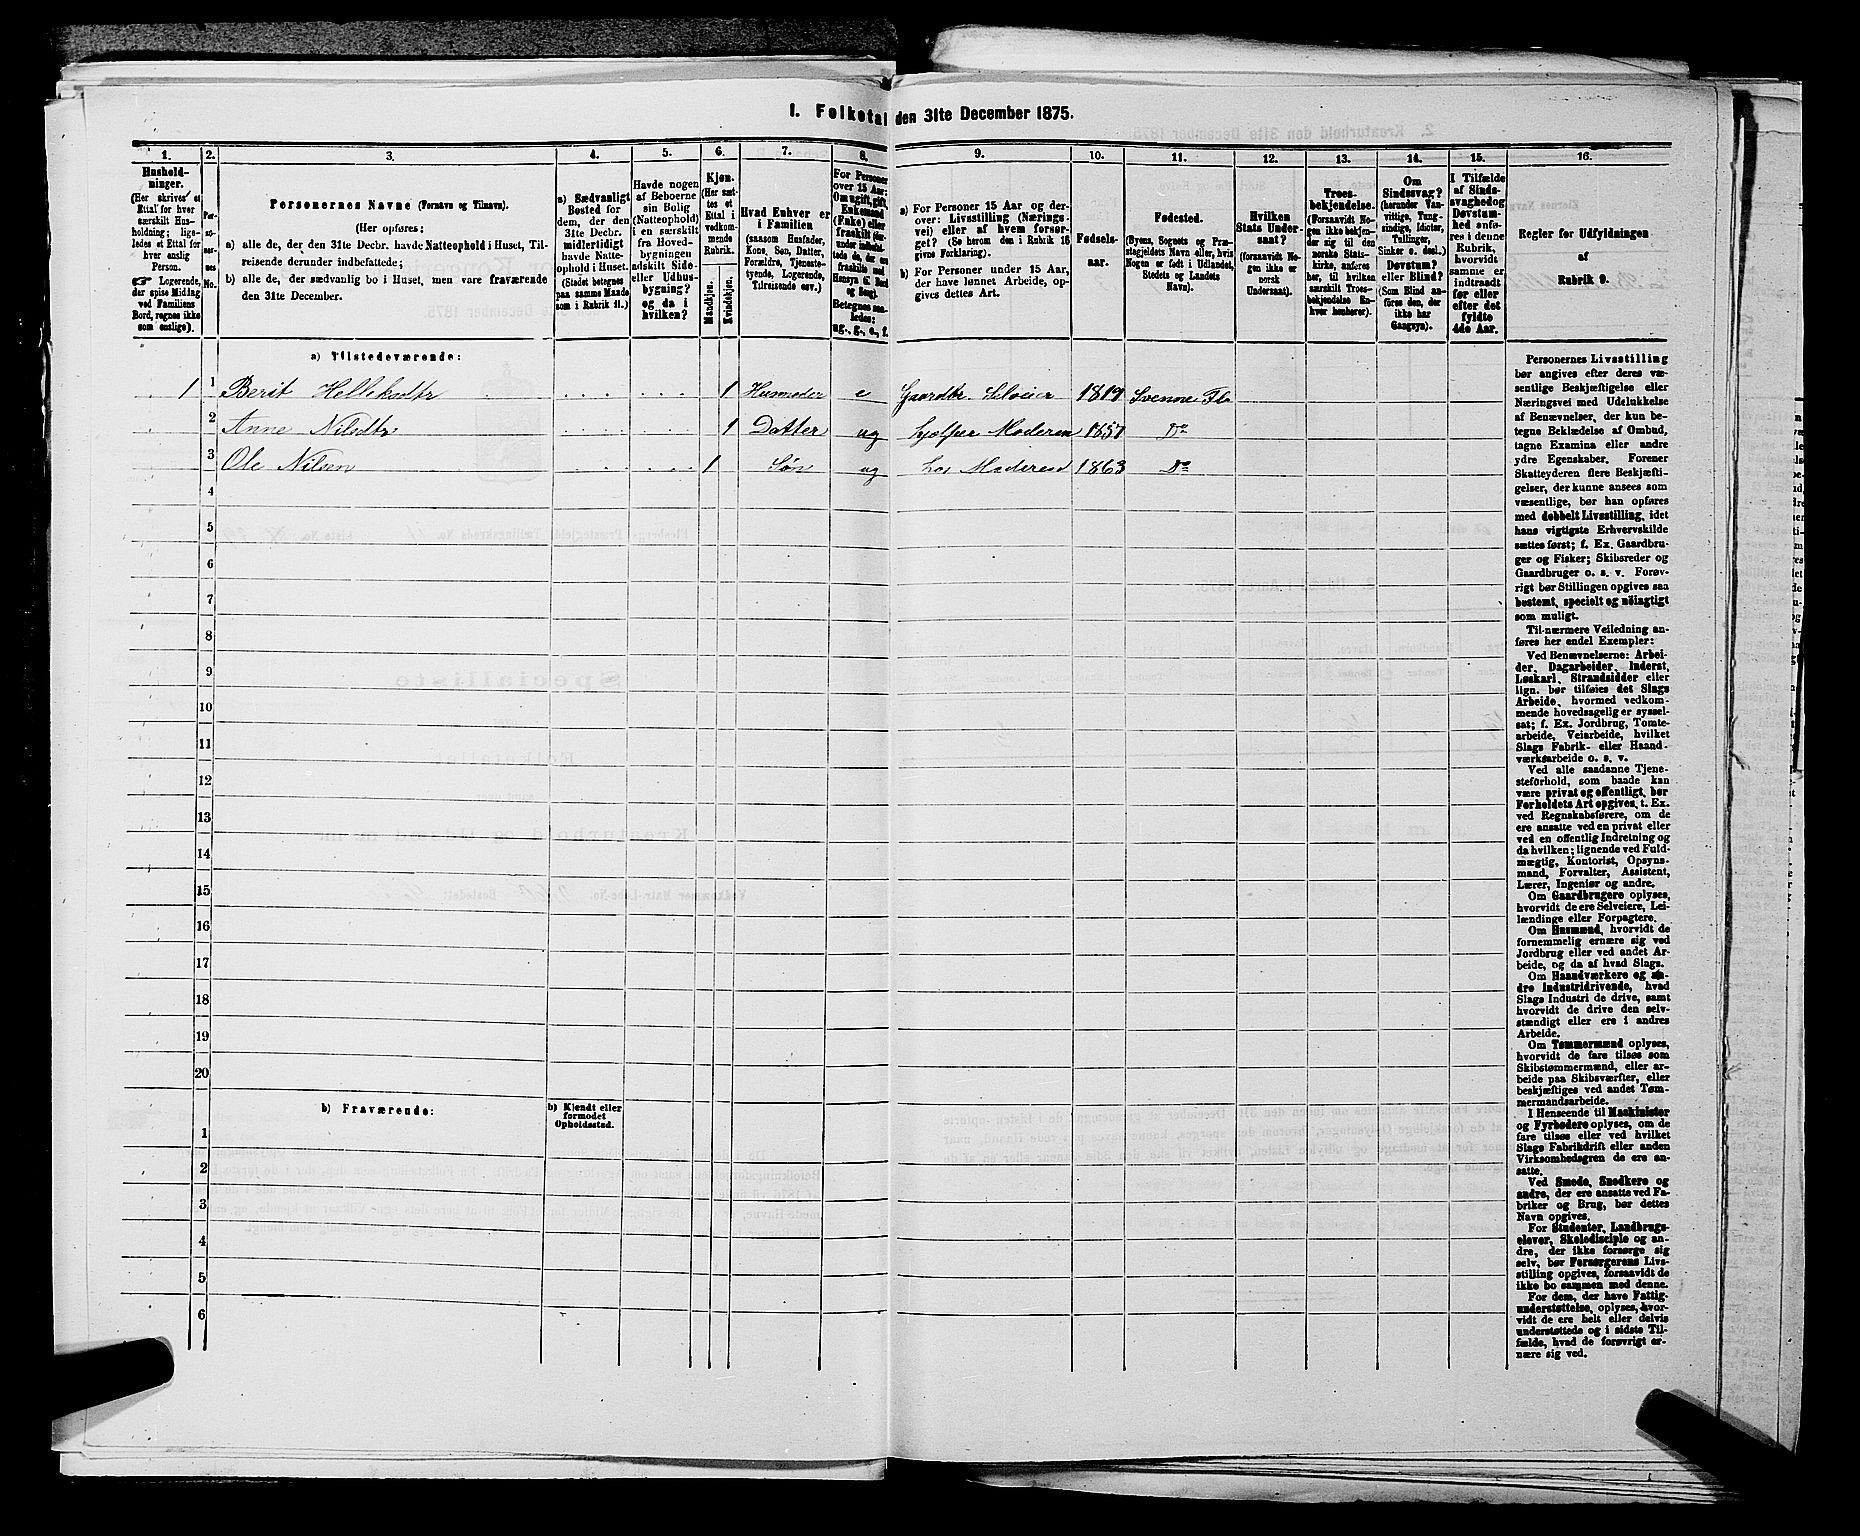 I. Folketal den 31te December 1875.
1. 2. 3. 4. 5. 6. 7. 8. 9. 10. 11. 12. 13. 14. 15. 16.
Husholdninger.
(Her skrives et Ettal for hver særskilt Husholdning; ligeledes et Ettal for hver enslig Person.
☞ Logerende, der spise Middag ved Familiens Bord, regnes ikke som enslige).
Personernes No.
Personernes Navne (Fornavn og Tilnavn).
(Her opføres:
a) alle de, der den 31te Decbr. havde Natteophold i Huset, Tilreisende derunder indbefattede;
b) alle de, der sædvanlig bo i Huset, men vare fraværende den 31te December.
a) Sædvanligt Bosted for dem, der den 31te Decbr. midlertidigt havde Natteophold i Huset.
(Stedet betegnes paa samme Maade som i Rubrik 11.)
Havde nogen af Beboerne sin Bolig (Natteophold) i en særskilt fra Hovedbygningen adskilt Side- eller Udhusbygning? og da i hvilken?
Kjøn.
(Her sættes et Ettal i vedkommende Rubrik.
Mandkjøn.
Kvindekjøn.
Hvad Enhver er i Familien
(saasom Husfader, Kone, Søn, Datter, Forældre, Tjenestetyende, Logerende, Tilreisende osv.)
For Personer over 15 Aar: Om ugift, gift, Enkemand (Enke) eller fraskilt
Betegnes saaledes: ug., g., e., f.
a) For Personer 15 Aar og derover: Livsstilling (Næringsvei) eller af hvem forsørget? (Se herom den i Rubrik 16 givne Forklaring).
b) For Personer under 15 Aar, der have lønnet Arbeide, opgives dettes Art.
Fødselsaar.
Fødested.
(Byens, Sognets og Præstegjeldets Navn eller, hvis Nogen er født i Udlandet, Stedets og Landets Navn).
Hvilken Stats Undersaat?
(forsaavidt Nogen ikke er norsk Undersaat).
Troesbekjendelse.
(Forsaavidt Nogen ikke bekjender sig til den norske Statskirke, anføres her, til hvilken særskilt Troesbekjendelse Enhver henhører).
Om Sindssvag?
(herunder Vanvittige, Tungsindige, Idioter, Tullinger, Sinker o. desl.)
Døvstum? eller Blind?
(Som Blind anføres den, der ikke har Gangsyn).
I Tilfælde af Sindssvaghed og Døvstumhed anføres i denne Rubrik, hvorvidt samme er indtraadt før eller efter det fyldte 4de Aar.
Regler for Udfyldningen
af
Rubrik 9.
a) Tilstedeværende:
1 1 Berit Helleksdtr 1 Husmoder e Gaardbr. Selveier 1819 Svenne Fl.
2 Anne Nilsdtr 1 Datter ug hjælper Moderen 1857 Do
3 Ole Nilsen 1 Søn ug hos Moderen 1863 Do
4
5
6
7
8
9
10
11
12
13
14
15
16
17
18
19
20
b) Fraværende:
b) Kjendt eller formodet Opholdssted.
1
2
3
4
5
6
Personernes Livsstilling
bør angives efter deres væ-
sentlige Beskjæftigelse eller
Næringsvei med Udelukkelse
af Benævnelser, der kun be-
tegne Beklædelse af Ombud,
tagne Examina eller andre
ydre Egenskaber. Forener
Skatteyderen flere Beskjæfti-
gelser, der kunne ansees som
væsentlige, bør han opføres
med dobbelt Livsstilling, idet
hans vigtigste Erhvervskilde
sættes først; f. Ex. Gaardbru-
ger og Fisker; Skibsreder og
Gaardbruger o. s. v. Forøv-
rigt bør Stillingen opgives saa
bestemt, specielt og nöiagtigt
som muligt.
Til nærmere Veiledning an-
føres her endel Exempler:
Ved Benævnelserne: Arbei-
der, Dagarbeider, Inderst,
Løskarl, Strandsidder eller
lign. bør tilføies det Slags
Arbeide, hvormed vedkom-
mende hovedsagelig er syssel-
sat; f. Ex. Jordbrug, Tomte-
arbeide, Veiarbeide, hvilket
Slags Fabrik- eller Haand-
værksarbeide o. s. v.
Ved alle saadanne Tjene-
steforhold, som baade kan
være privat og offentligt, bør
Forholdets Art opgives, t. Ex.
ved Regnskabsførere, om de
ere ansatte ved en privat eller
ved en offentlig Indretning og
da hvilken; lignende ved Fuld-
mægtig, Kontorist, Opsyns-
mand, Forvalter, Assistent,
Lærer, Ingeniør og andre.
Om Gaardbrugere oplyses,
hvorvidt de ere Selveiere, Lei-
lændinge eller Forpagtere.
Om Husmænd, hvorvidt de
fornemmelig ernære sig ved
Jordbrug eller ved andet Ar-
beide, og da af hvad Slags.
Om Haandværkere og an-
dre Industridrivende, hvad
Slags Industri de drive, samt
hvorvidt de drive den selv-
stændigt eller ere i andres
Arbeide.
Om Tømmermænd oplyses,
hvorvidt de fare tilsøs som
Skibstømmermænd, eller ar-
beide paa Skibsværfter, eller
beskjæftiges ved andet Tøm-
mermandsarbeide.
I Henseende til Maskinister
og Fyrbødere oplyses, om de
fare tilsøs eller ved hvilket
Slags Fabrikdrift eller anden
Virksomhedsgren de ere an-
satte.
Ved Smede, Snedkere og
andre, der ere ansatte ved Fa-
briker og Brug, bør dettes
Navn opgives.
For Studenter, Landbrugs-
elever, Skoledisciple og an-
dre, der ikke forsørge sig
selv, bør Forsørgerens Livs-
stilling opgives, forsaavidt de
ikke bo sammen med denne.
For dem, der have Fattig-
understøttelse, oplyses, hvor-
vidt de ere helt eller delvis
understøttede og i sidste Til-
fælde, hvad de forøvrigt er-
nære sig ved.